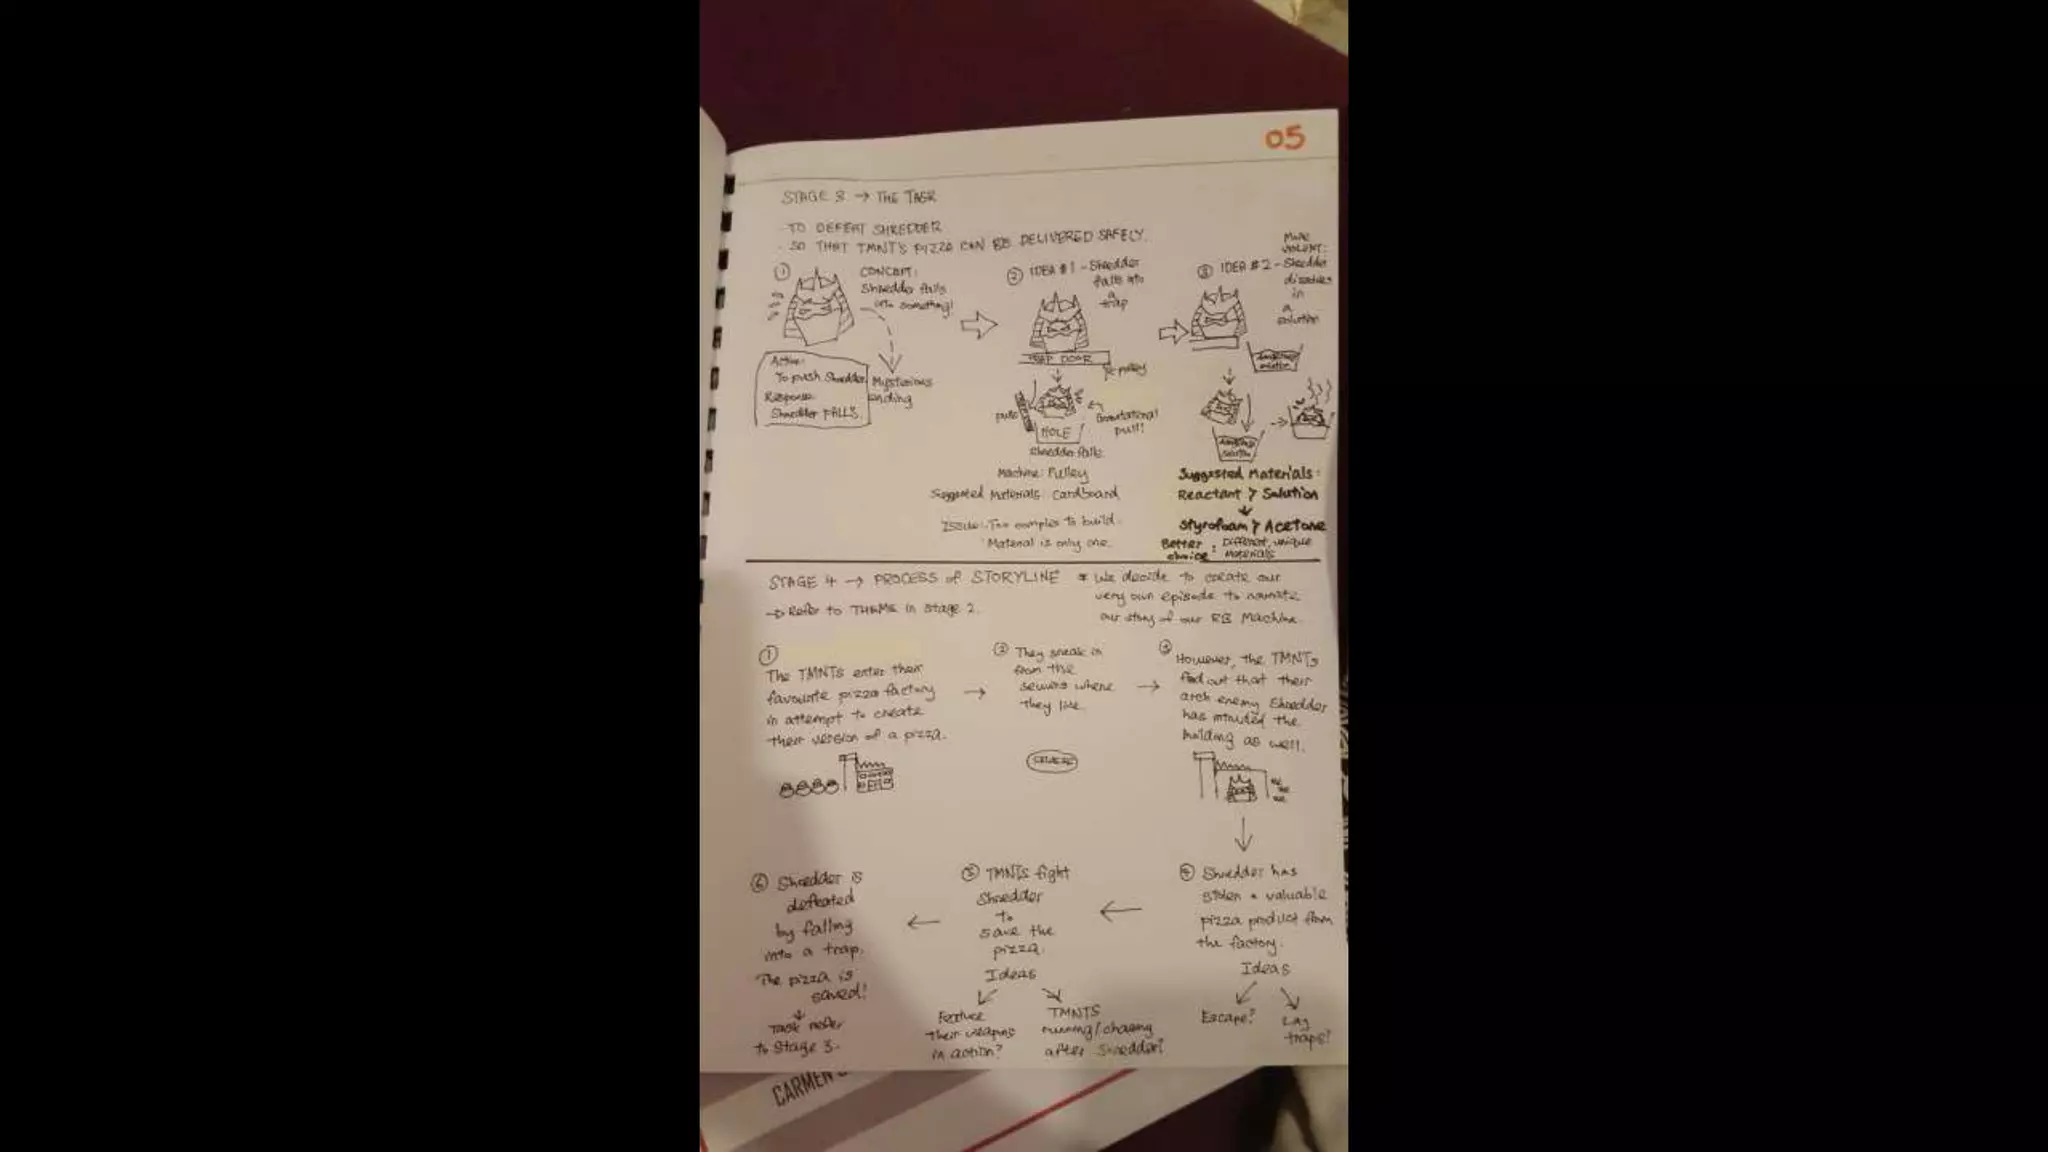 05
STAGE 3 → THE TASK
- TO DEFEAT SHREDDER
- SO THAT TMNT'S PIZZA CAN BE DELIVERED SAFELY.
①
CONCEPT:
Shredder falls
into something!
Mysterious
ending
Action:
To push Shredder
Response:
Shredder FALLS.
② IDEA #1 - Shredder
falls into
a
trap
TRAP DOOR
pulley
pulls
Gravitational
pull!
HOLE
Shredder falls.
Machine: Pulley
Suggested Materials: Cardboard
Issue: Too complex to build.
Material is only one.
MORE
VIOLENT:
③ IDEA #2 - Shredder
dissolves
in
a
solution
Suggested Materials:
Reactant > Solution
↓
Styrofoam > Acetone
Better choice: Different, unique
Materials
STAGE 4 → PROCESS of STORYLINE
→ Refer to THEME in Stage 2.
* We decide to create our
very own episode to narrate
our story of our RB Machine.
①
The TMNTS enter their
favourite pizza factory
in attempt to create
their version of a pizza.
→
② They sneak in
from the
sewers where
they live.
→
③
However, the TMNTs
find out that their
arch enemy Shredder
has intruded the
building as well.
④ Shredder has
stolen a valuable
pizza product from
the factory.
Ideas
Escape?
Lay
traps?
⑤ TMNTs fight
Shredder
to
save the
pizza.
Ideas
Feature
their weapons
in action?
TMNTS
running/chasing
after Shredder?
⑥ Shredder is
defeated
by falling
into a trap.
The pizza is
saved!
↓
Task refer
to Stage 3.
CARMEN